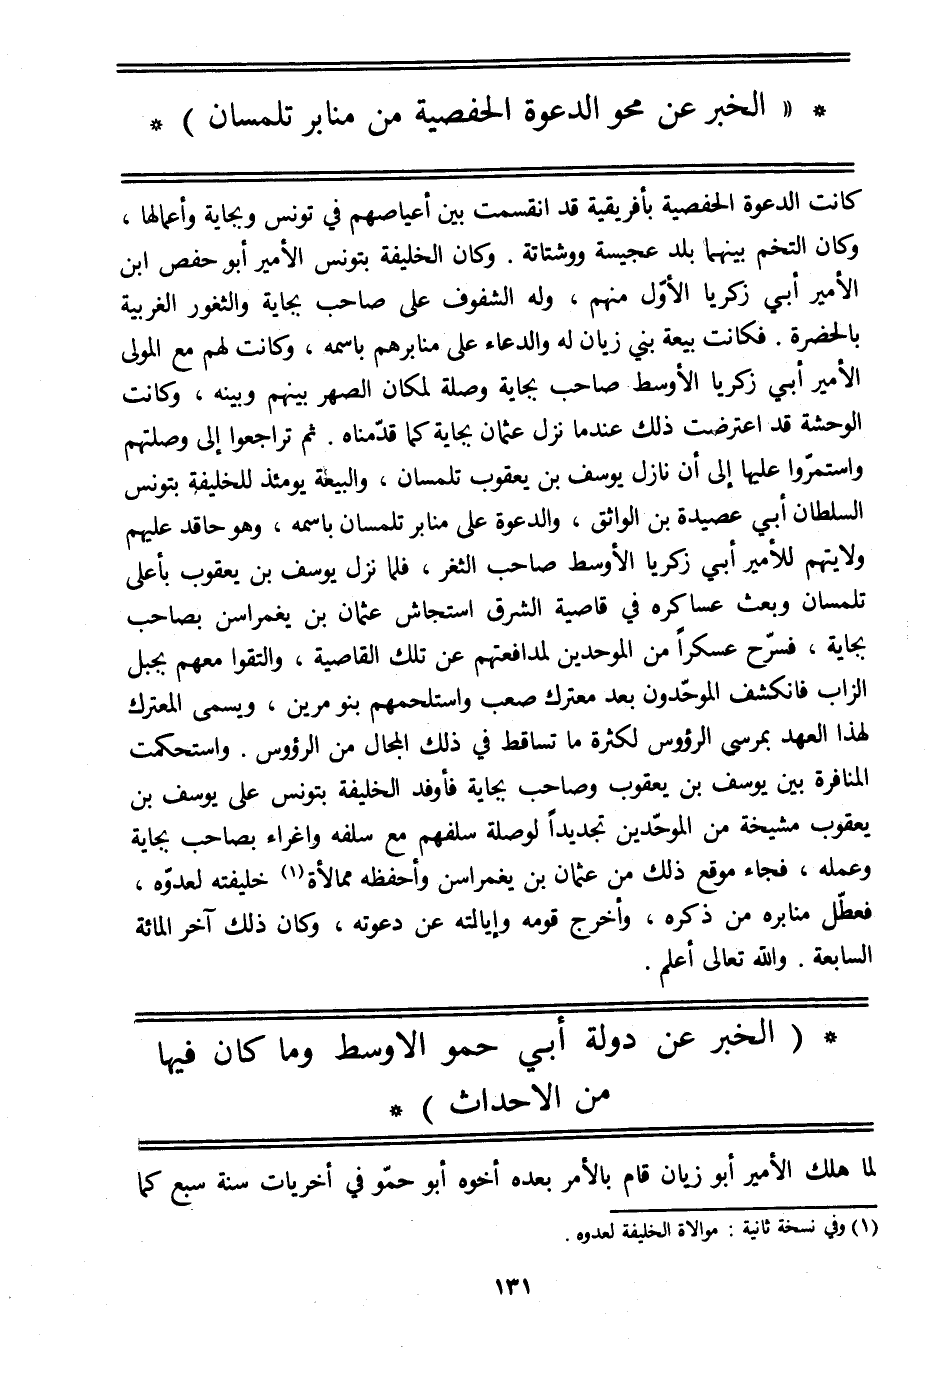 * (( الخبر عن محو الدعوة الحفصية من منابر تلمسان ) *
كانت الدعوة الحفصية بأفريقية قد انقسمت بين أعياصهم في تونس وبجاية وأعمالها ،
وكان التخم بينهما بلد عجيسة ووشتاتة . وكان الخليفة بتونس الأمير أبو حفص ابن
الأمير أبي زكريا الأوّل منهم ، وله الشفوف على صاحب بجاية والثغور الغربية
بالحضرة . فكانت بيعة بني زيان له والدعاء على منابرهم باسمه ، وكانت لهم مع المولى
الأمير أبي زكريا الأوسط صاحب بجاية وصلة لمكان الصهر بينهم وبينه ، وكانت
الوحشة قد اعترضت ذلك عندما نزل عثمان بجاية كما قدّمناه . ثم تراجعوا إلى وصلتهم
واستمرّوا عليها إلى أن نازل يوسف بن يعقوب تلمسان ، والبيعة يومئذ للخليفة بتونس
السلطان أبي عصيدة بن الواثق ، والدعوة على منابر تلمسان باسمه ، وهو حاقد عليهم
ولايتهم للأمير أبي زكريا الأوسط صاحب الثغر ، فلما نزل يوسف بن يعقوب بأعلى
تلمسان وبعث عساكره في قاصية الشرق استجاش عثمان بن يغمراسن بصاحب
بجاية ، فسرّح عسكراً من الموحدين لمدافعتهم عن تلك القاصية ، والتقوا معهم بجبل
الزاب فانكشف الموحّدون بعد معترك صعب واستلحمهم بنو مرين ، ويسمى المعترك
لهذا العهد بمرسى الرؤوس لكثرة ما تساقط في ذلك المجال من الرؤوس . واستحكمت
المنافرة بين يوسف بن يعقوب وصاحب بجاية فأوفد الخليفة بتونس على يوسف بن
يعقوب مشيخة من الموحّدين تجديداً لوصلة سلفهم مع سلفه واغراء بصاحب بجاية
وعمله ، فجاء موقع ذلك من عثمان بن يغمراسن وأحفظه ممالأة(١) خليفته لعدوّه ،
فعطّل منابره من ذكره ، وأخرج قومه وإيالته عن دعوته ، وكان ذلك آخر المائة
السابعة . والله تعالى أعلم .
* ( الخبر عن دولة أبي حمو الاوسط وما كان فيها
من الاحداث ) *
لما هلك الأمير أبو زيان قام بالأمر بعده أخوه أبو حمّو في أخريات سنة سبع كما
(١) وفي نسخة ثانية : موالاة الخليفة لعدوه .
١٣١